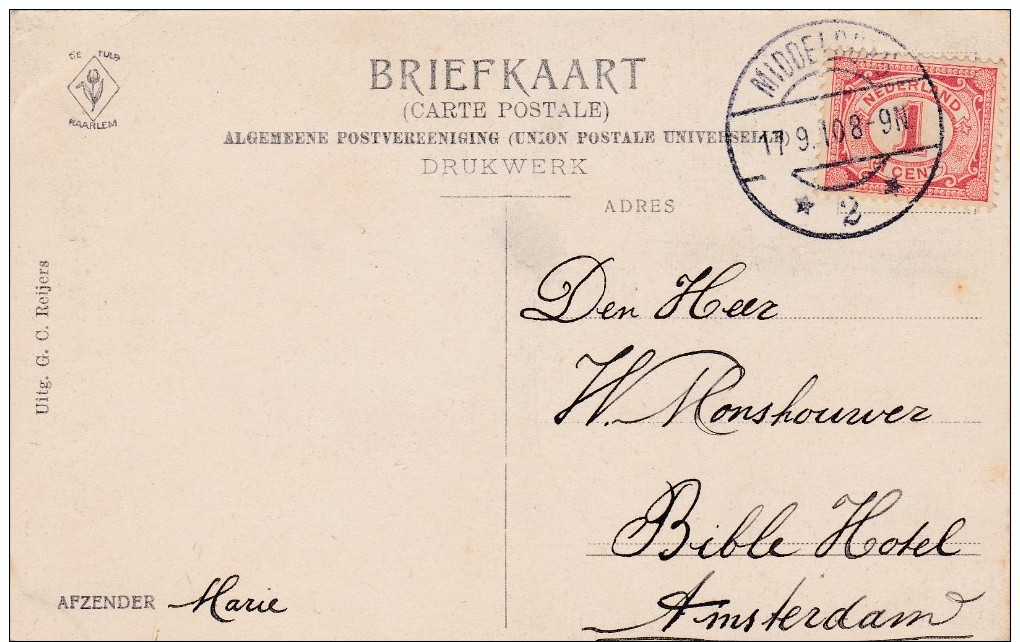 DE TULP
HAARLEM
BRIEFKAART
(CARTE POSTALE)
ALGEMEENE POSTVEREENIGING (UNION POSTALE UNIVERSELLE)
DRUKWERK
ADRES
MIDDELBURG
17.9.10 8-9N
2
NEDERLAND
1
CENT
Uitg. G. C. Reijers
Den Heer
W. Monshouwer
Bible Hotel
Amsterdam
AFZENDER Marie